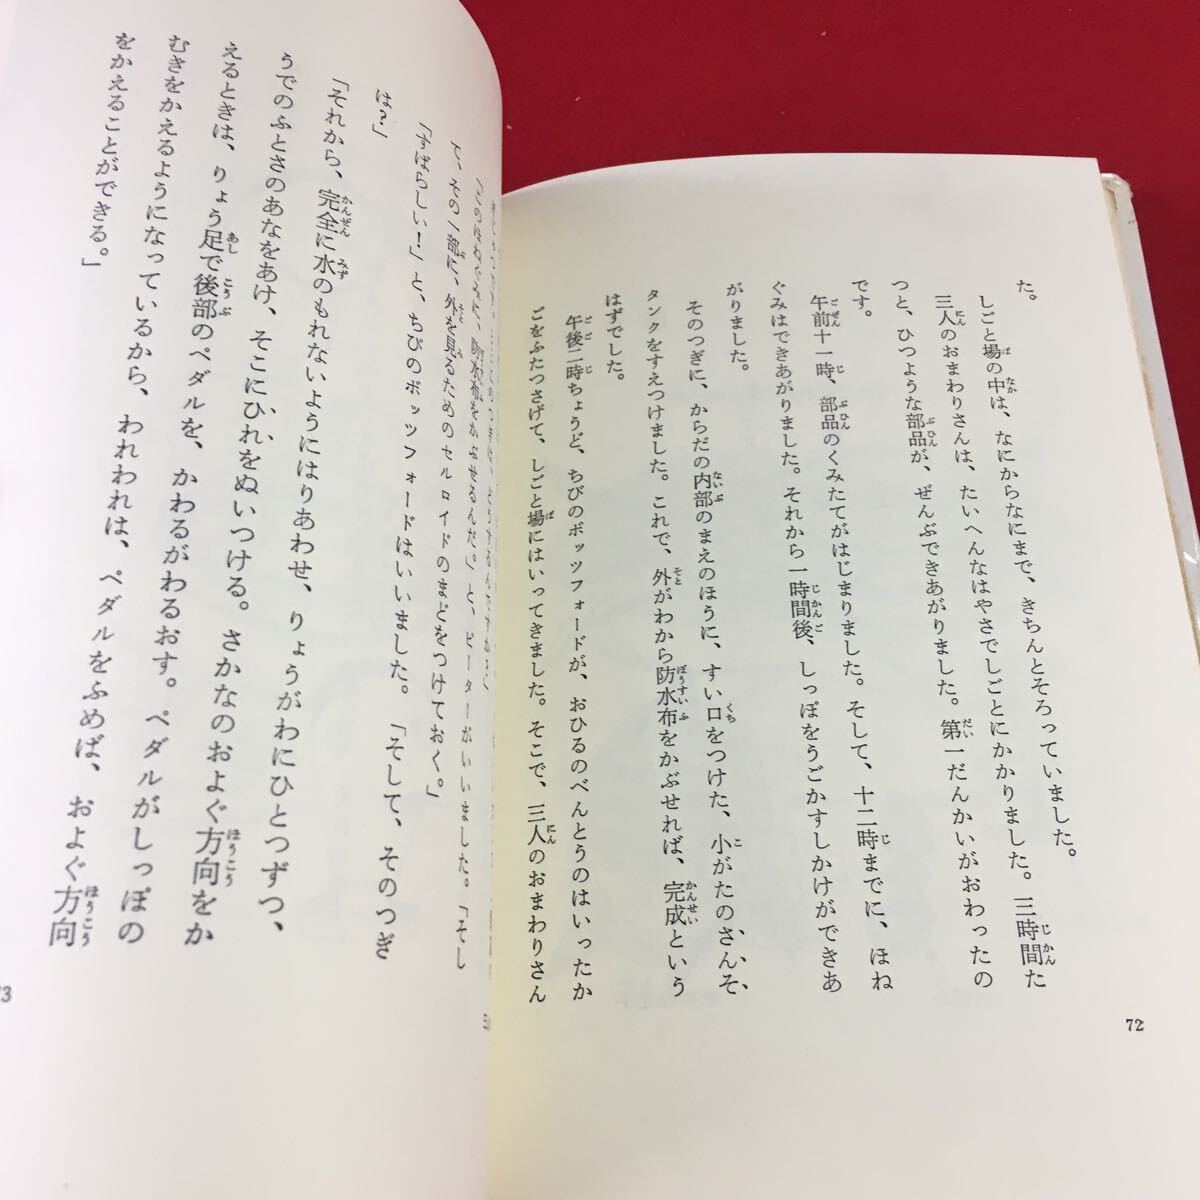 た。
しごと場の中は、なにからなにまで、きちんとそろっていました。
三人のおまわりさんは、たいへんなはやさでしごとにかかりました。三時間た
つと、ひつような部品が、ぜんぶできあがりました。第一だんかいがおわったの
です。
午前十一時、部品のくみたてがはじまりました。そして、十二時までに、ほね
ぐみはできあがりました。それから一時間後、しっぽをうごかすしかけができあ
がりました。
そのつぎに、からだの内部のまえのほうに、すい口をつけた、小がたのさんそ
タンクをすえつけました。これで、外がわから防水布をかぶせれば、完成という
はずでした。
午後二時ちょうど、ちびのボッツフォードが、おひるのべんとうのはいったか
ごをふたつさげて、しごと場にはいってきました。そこで、三人のおまわりさん
72
「このほねぐみに、防水布をかぶせるんだ。」と、ピーターがいいました。「そし
て、その一部に、外を見るためのセルロイドのまどをつけておく。」
「すばらしい！」と、ちびのボッツフォードはいいました。「そして、そのつぎ
は？」
「それから、完全に水のもれないようにはりあわせ、りょうがわにひとつずつ、
うでのふとさのあなをあけ、そこにひれをぬいつける。さかなのおよぐ方向をか
えるときは、りょう足で後部のペダルを、かわるがわるおす。ペダルがしっぽの
むきをかえるようになっているから、われわれは、ペダルをふめば、およぐ方向
をかえることができる。」